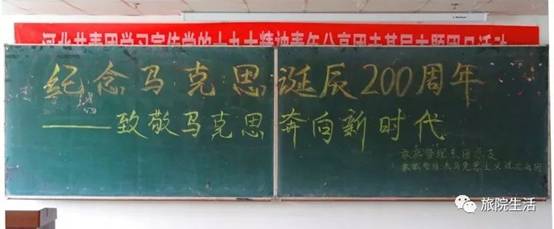 河北共青团学习宣传党的十九大精神青年分享团走基层主题团日活动
纪念马克思诞辰200周年
——致敬马克思 奔向新时代
旅院生活